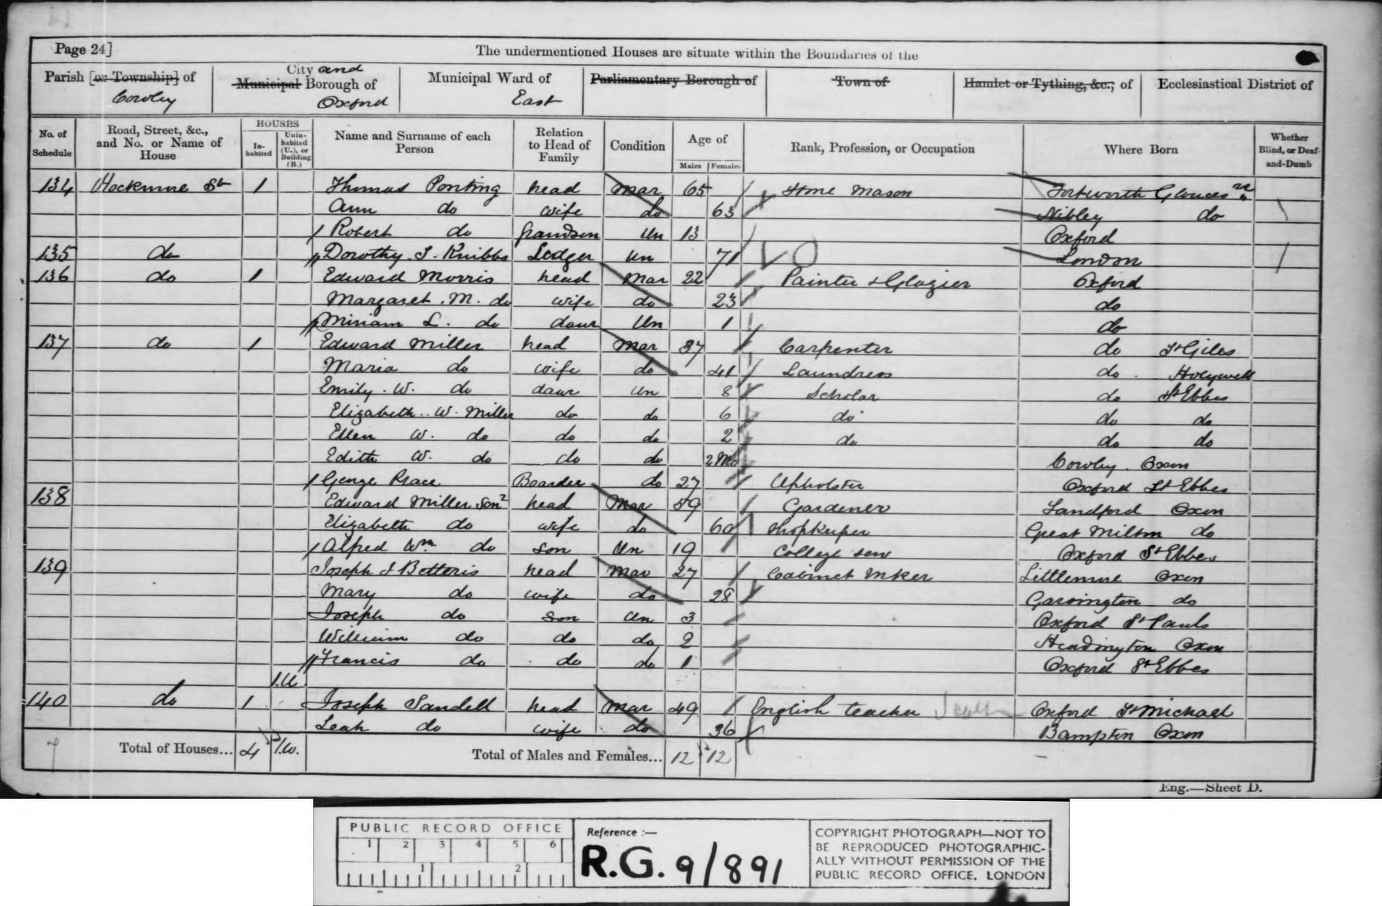 Page 24]
The undermentioned Houses are situate within the Boundaries of the
Parish [or Township] of Cowley
City and Municipal Borough of Oxford
Municipal Ward of East
Parliamentary Borough of
Town of
Hamlet or Tything, &c., of
Ecclesiastical District of
No. of Schedule
Road, Street, &c., and No. or Name of House
HOUSES
In-habited
Unin-habited (U.), or Building (B.)
Name and Surname of each Person
Relation to Head of Family
Condition
Age of
Males Females
Rank, Profession, or Occupation
Where Born
Whether Blind, or Deaf-and-Dumb
134 St 1 Thomas Ponting head Mar 65 Stone Mason Tortworth
Ann do wife do 63 Nibley do
Robert do grandson Un 13 Oxford
135 do Dorothy Knibbs Lodger Un 71 London
136 do 1 Edward Morris head Mar 22 Painter & Glazier Oxford
Margaret. M. do wife do 23 do
Miriam L. do daur Un 1 do
137 do 1 Edward Miller head Mar 37 Carpenter do St Giles
Maria do wife do 41 Laundress do Holywell
Emily. W. do daur Un 8 Scholar do St Ebbes
Elizabeth. W. Miller do do 6 do do do
Ellen W. do do do 2 do do do
Edith W. do do do 2 Mo Cowley. Oxon
George Boarder do 27 Upholster Oxford St Ebbes
138 Edward Miller head Mar 59 Gardener Sandford Oxon
Elizabeth do wife do 60 Shopkeeper Great Milton do
Alfred Wm do son Un 19 College Oxford St Ebbes
139 Joseph Botteris head Mar 27 Cabinet Mker Littlemore Oxon
Mary do wife do 28 do
Joseph do son Un 3 Oxford St Pauls
William do do do 2 Headington Oxon
Francis do do do 1 Oxford St Ebbes
1.U
140 do 1 Joseph Sandell head Mar 49 English teacher Oxford St Michael
Leah do wife do 36 Bampton Oxon
Total of Houses... 4
Total of Males and Females... 12 12
Eng.—Sheet D.
PUBLIC RECORD OFFICE
1 2 3 4 5 6
1 2
Reference :—
R.G. 9/891
COPYRIGHT PHOTOGRAPH—NOT TO
BE REPRODUCED PHOTOGRAPHIC-
ALLY WITHOUT PERMISSION OF THE
PUBLIC RECORD OFFICE, LONDON